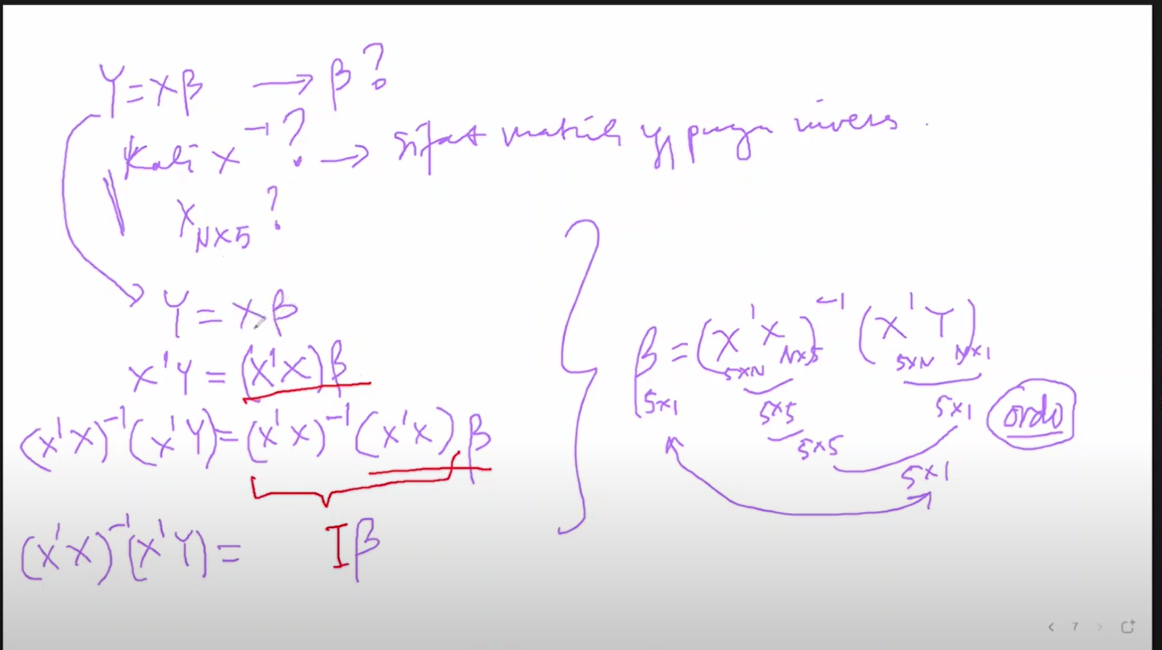 Y = Xβ → β ?
Kali X⁻¹ ? → Sifat matrik yg punya invers.
X N×5 ?
Y = Xβ
X'Y = (X'X)β
(X'X)⁻¹(X'Y) = (X'X)⁻¹(X'X)β
(X'X)⁻¹(X'Y) = Iβ
β = (X'X)⁻¹ (X'Y)
5×1 5×N N×5 5×N N×1
5×5 5×1 ordo
5×5
5×1
< 7 >